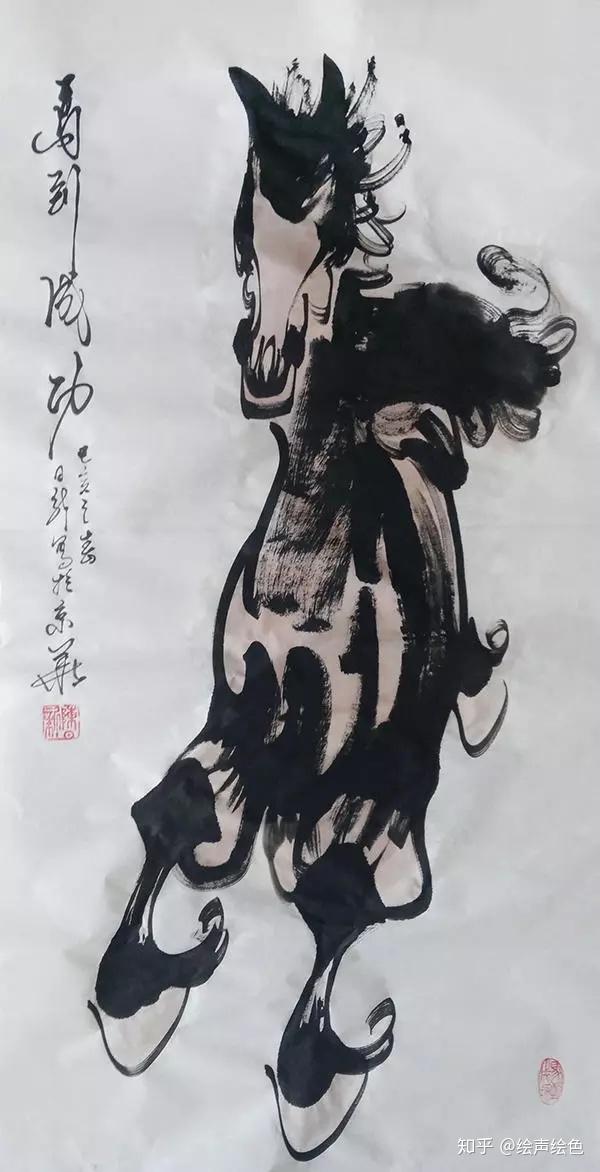 馬到成功
己亥之春
日新寫於京華
知乎 @绘声绘色